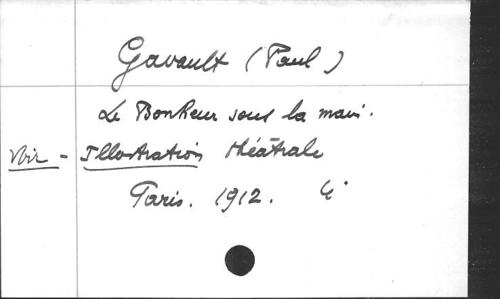 Gavault (Paul)
Le Bonheur sous la main.
Voir - Illustration théâtrale
Paris. 1912. 4°